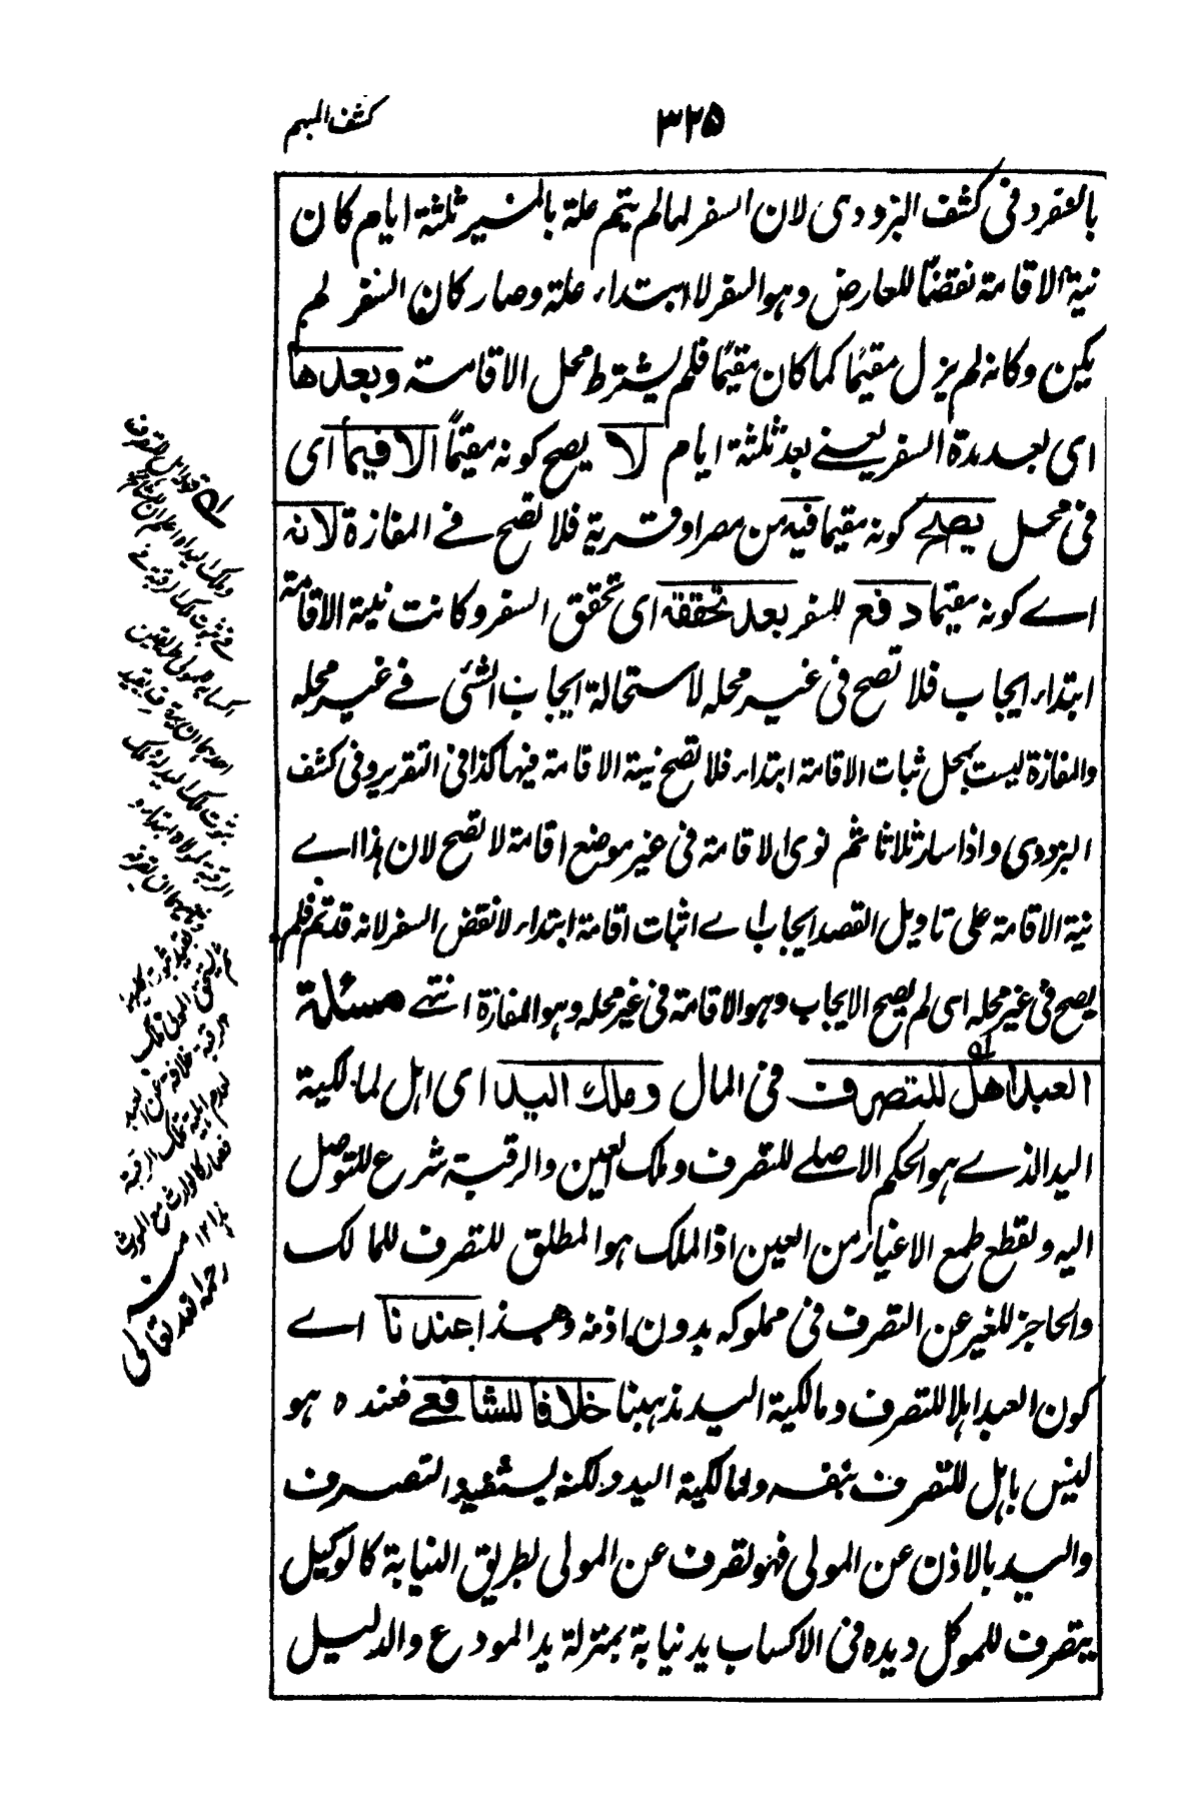 ٣٢٥
كشف المبهم
بالسفر وفى كشف البزدوى لان السفر لما لم يتم علة بالمسير ثلثة ايام كان
نية الاقامة نقضا للعارض وهو السفر لا ابتداء علة وصار كان السفر لم
يكن وكانه لم يزل مقيمًا كما كان مقيمًا فلم يشترط محل الاقامة وبعدها
اى بعد مدة السفر يعنے بعد ثلثة ايام لا يصح كونه مقيمًا الا فيما اى
فى محل يصلح كونه مقيما فيه من مصر او قرية فلا تصح فے المفازة لانه
اے كونه مقيما دفع للسفر بعد تحققه اى تحقق السفر وكانت نية الاقامة
ابتداء ايجاب فلا تصح فى غير محله لاستحالة ايجاب الشئ فے غير محله
والمفازة ليست بمحل ثبات الاقامة ابتداء فلا تصح نية الاقامة فيها كذا فى التقرير وفى كشف
البزدوى واذا سار ثلاثا ثم نوى الاقامة فى غير موضع اقامة لا تصح لان هذا اے
نية الاقامة على تاويل القصد ايجاب اے اثبات اقامة ابتداء لا نقض السفر لانه قد تم فلم
يصح فى غير محله اى لم يصح الايجاب وهو الاقامة فى غير محله وهو المفازة انتهے مسئلة
العبد اهل للتصرف فى المال وملك اليد اى اهل لمالكية
اليد الذے هو الحكم الاصلے للتصرف وملك العين والرقبة شرع للتوصل
اليه ولقطع طمع الاغيار من العين اذ الملك هو المطلق للتصرف للمالك
والحاجز للغير عن التصرف فى مملوكه بدون اذنه وهذا عندنا اے
كون العبد اهلا للتصرف ومالكية اليد مذهبنا خلافا للشافعے فعنده هو
ليس باهل للتصرف بنفسه ولمالكية اليد ولكنه يستفيد التصرف
واليد بالاذن عن المولى فهو تصرف عن المولى بطريق النيابة كالوكيل
يتصرف للموكل ويده فى الاكساب يد نيابة بمنزلة يد المودع والدليل
الرقبة خلافة عن العبد
لعدم اهلية ملك الرقبة
فصار كالوارث مع المورث
١٢ منه
رحمه الله تعالى